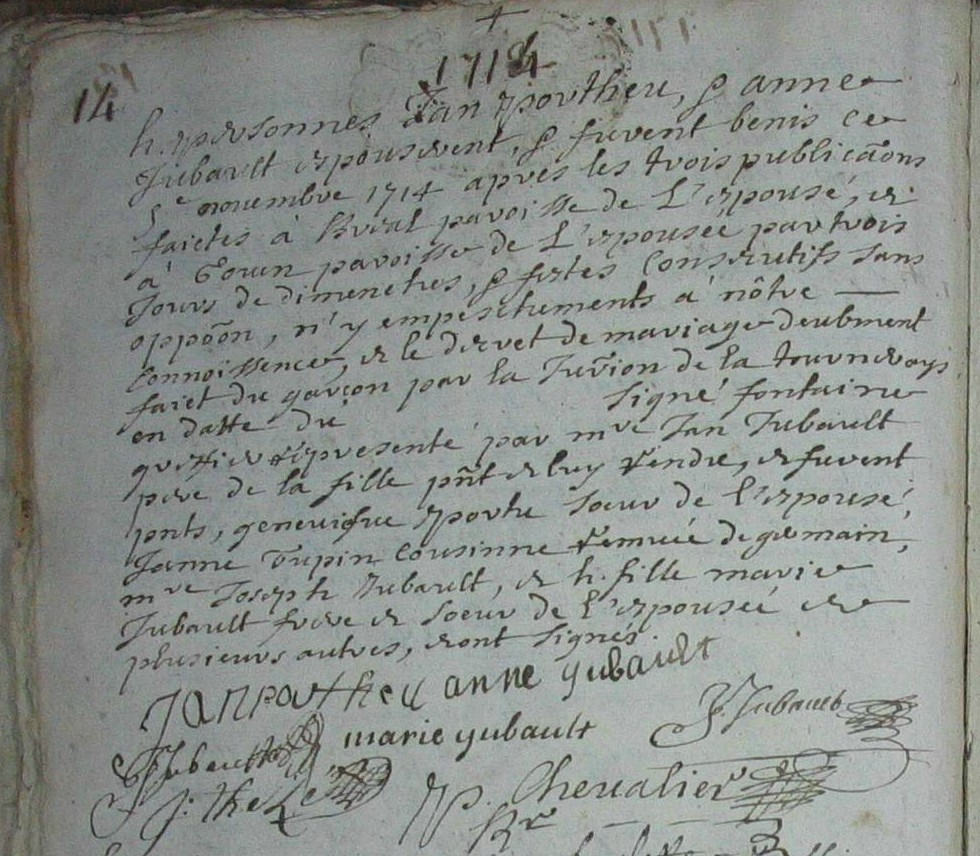 1714
14
h. personnes Jan portheu, & anne
Jubault espouserent, & furent benis ce
5e novembre 1714 apres les trois publicãons
faictes à paroisse de L'espousé, et
à Gourin paroisse de L'espouseé par trois
Jours de dimenches, & festes Consecutifs sans
oppõon, n'y empeschements a nôtre —
Connoissence, et le decret de mariage deubment
faict du garçon par la Juriõn de la
en datte du signé fontaine
greffier represente par mre Jan Jubault
pere de la fille pñt et luy rendu, et furent
pnts, genevefve portheu soeur de l'espousé,
Janne Tupin Cousinne de germain,
mre Joseph Jubault, et h. fille marie
Jubault frere et soeur de l'espouseé et
plusieurs autres, et ont signés.
JAN portheu anne yubault
J. Jubault
Jubault marie yubault
J: p. Chevalier
Rr